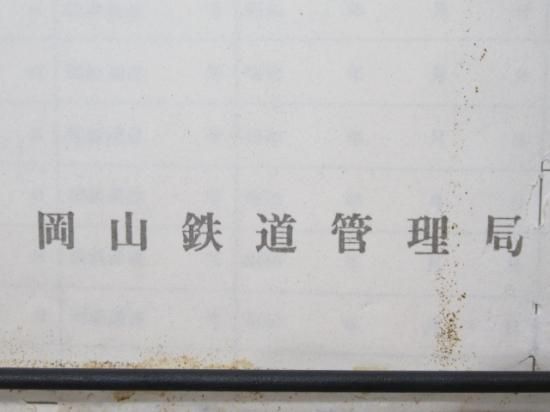 岡山鉄道管理局